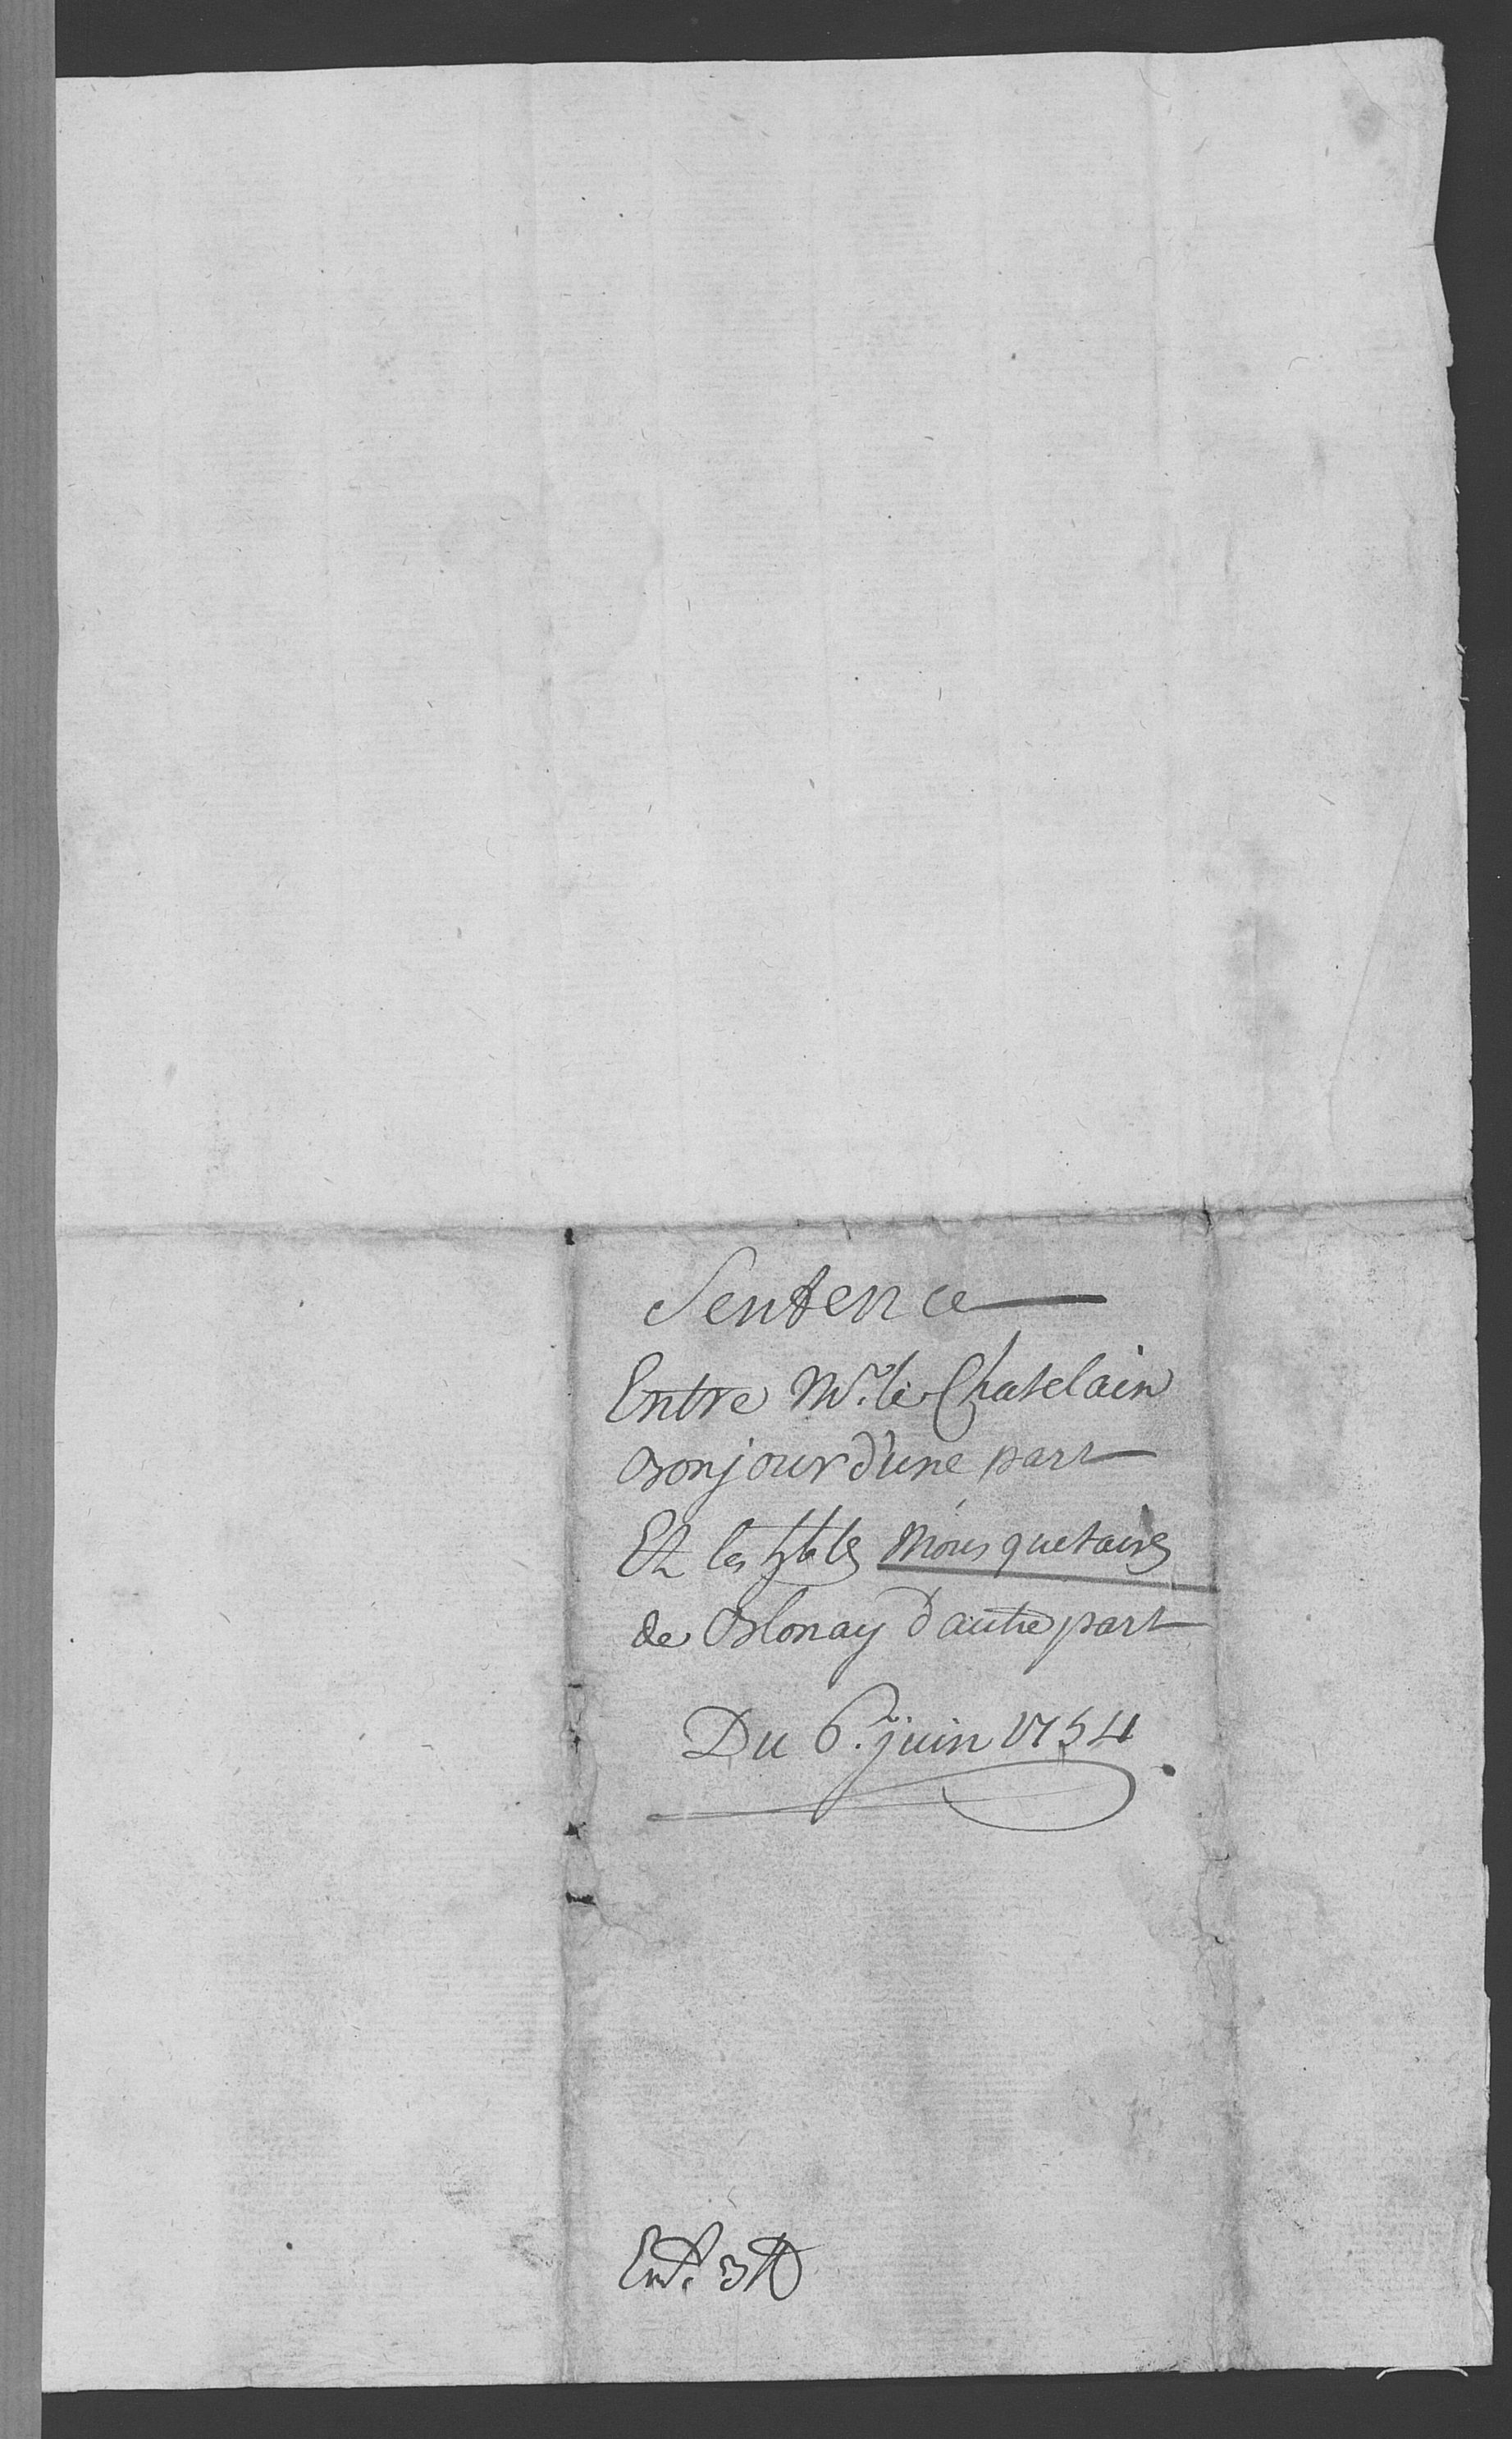 Sentence
Entre Mr. le Chatelain
Bonjour d'une part
Et les hbles Mousquetaires
de Blonay d'autre part
Du 6.e juin 1754